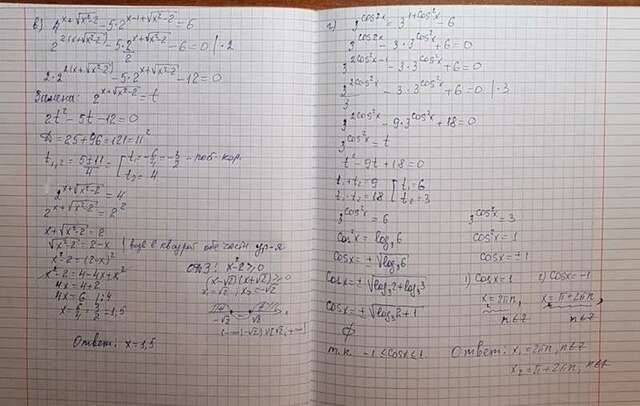 в) 4^(x+√(x²-2)) - 5·2^(x-1+√(x²-2)) - 6
2^(2(x+√(x²-2))) - 5·2^(x+√(x²-2))/2 - 6 = 0 | ·2
2·2^(2(x+√(x²-2))) - 5·2^(x+√(x²-2)) - 12 = 0
Замена: 2^(x+√(x²-2)) = t
2t² - 5t - 12 = 0
D = 25 + 96 = 121 = 11²
t₁,₂ = (5±11)/4 = [ t₁ = -6/4 = -3/2 - пост. кор.
t₂ = 4
2^(x+√(x²-2)) = 4
2^(x+√(x²-2)) = 2²
x + √(x²-2) = 2
√(x²-2) = 2 - x | обе части ур-я
x² - 2 = (2-x)²
x² - 2 = 4 - 4x + x²
4x = 4 + 2
4x = 6 | :4
x = 6/4 = 3/2 = 1,5
ОДЗ: x² - 2 ≥ 0
(x-√2)(x+√2) ≥ 0
x₁ = √2; x₂ = -√2
-√2 √2
(-∞; -√2) ∪ [√2; +∞]
Ответ: x = 1,5
г) 3^(cos2x) - 3^(1+cos²x) - 6
3^(cos2x) - 3·3^(cos²x) + 6 = 0
3^(2cos²x-1) - 3·3^(cos²x) + 6 = 0
3^(2cos²x)/3 - 3·3^(cos²x) + 6 = 0 | ·3
3^(2cos²x) - 9·3^(cos²x) + 18 = 0
3^(cos²x) = t
t² - 9t + 18 = 0
t₁ + t₂ = 9 [ t₁ = 6
t₁ · t₂ = 18 [ t₂ = 3
3^(cos²x) = 6
cos²x = log₃6
cosx = ±√(log₃6)
cosx = ±√(log₃2 + log₃3)
cosx = ±√(log₃2 + 1)
∅
т.к. -1 ≤ cosx ≤ 1
3^(cos²x) = 3
cos²x = 1
cosx = ±1
1) cosx = 1 2) cosx = -1
x = 2πn, x = π + 2πn,
n∈Z n∈Z
Ответ: x₁ = 2πn, n∈Z
x₂ = π + 2πn, n∈Z